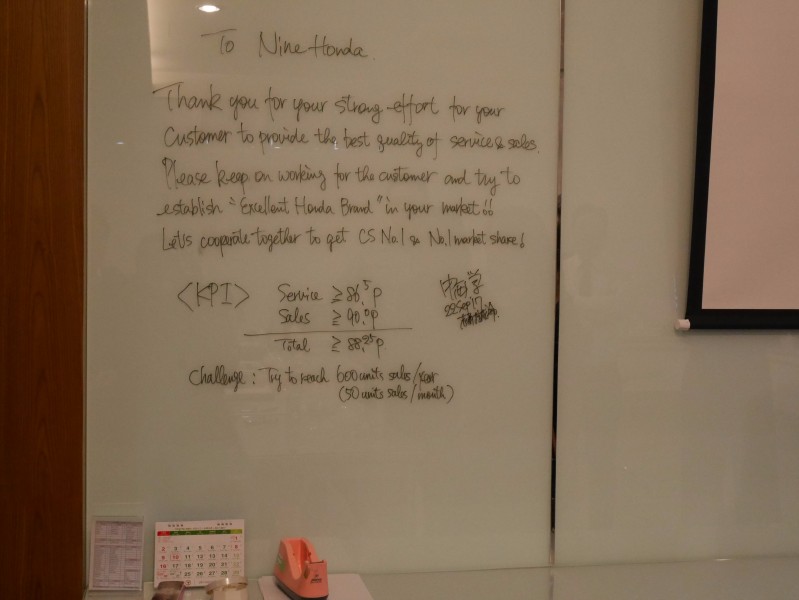 To Nine Honda.
Thank you for your strong effort for your
customer to provide the best quality of service & sales.
Please keep on working for the customer and try to
establish "Excellent Honda Brand" in your market!!
Let's cooparate together to get CS No.1 & No.1 market share!
<KPI> Service ≧ 86.5p
Sales ≧ 90.0p
Total ≧ 88.25p
22 Sep '17
Challenge : Try to reach 600 units sales/year
(50 units sales/month)